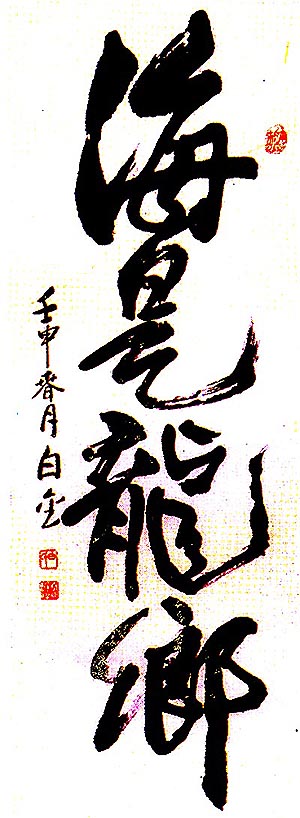 海是龍鄉
壬申春月白金